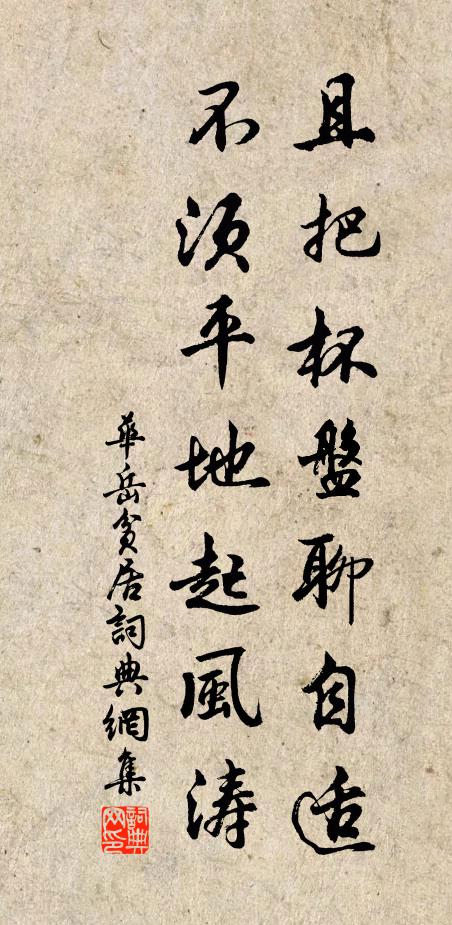 且把杯盤聊自适
不須平地起風濤
華岳貧居詞典網集
詞典網印